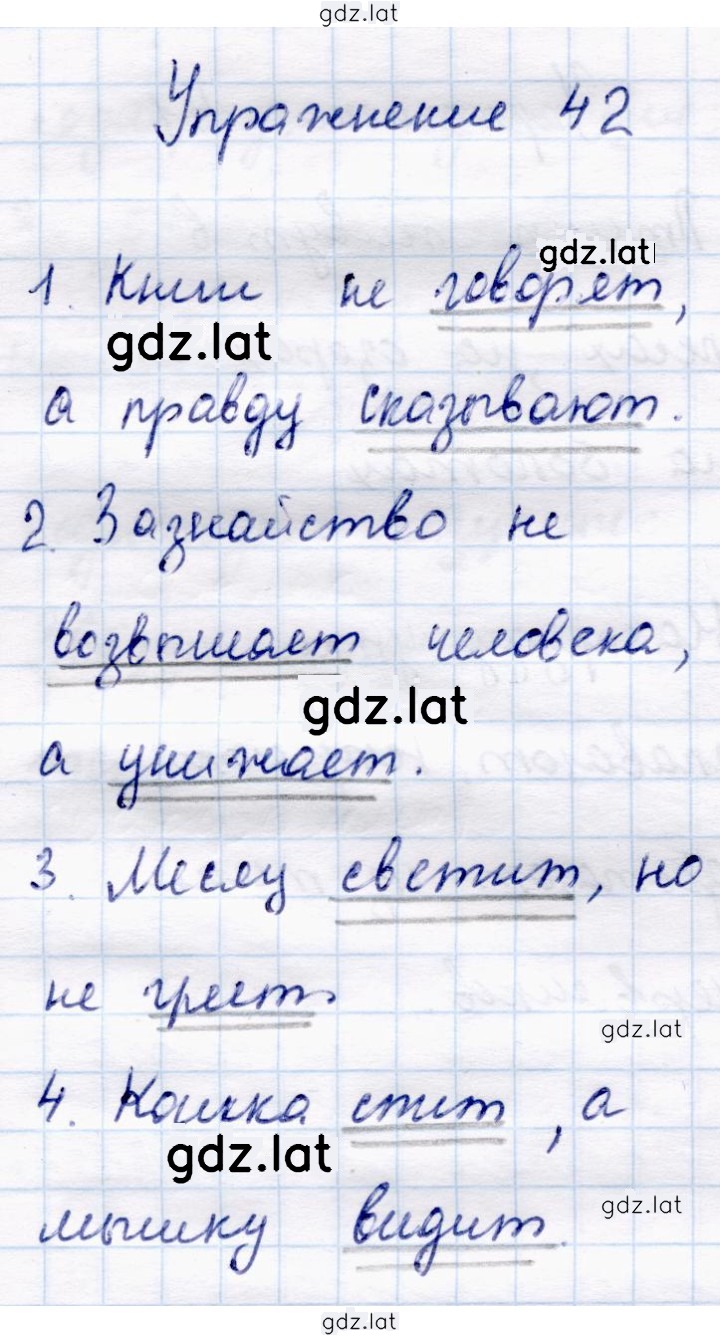 gdz.lat
Упражнение 42
gdz.lat
1. Книги не говорят,
gdz.lat
а правду сказывают.
2. Зазнайство не
возвышает человека,
gdz.lat
а унижает.
3. Месяц светит, но
не греет
gdz.lat
4. Кошка спит, а
gdz.lat
gdz.lat
мышку видит.
gdz.lat